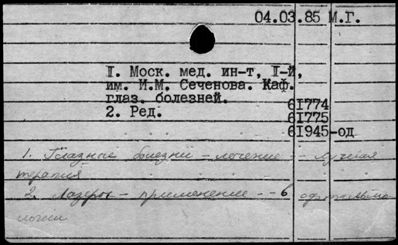 04.03.85 М.Г.
I. Моск. мед. ин-т, I-й,
им. И.М. Сеченова. Каф.
глаз. болезней.
2. Ред.
6I774
6I775
6I945-од
1. Глазные болезни - лечение - лучевая
терапия
2. Лазеры - применение - в офтальмо
логии